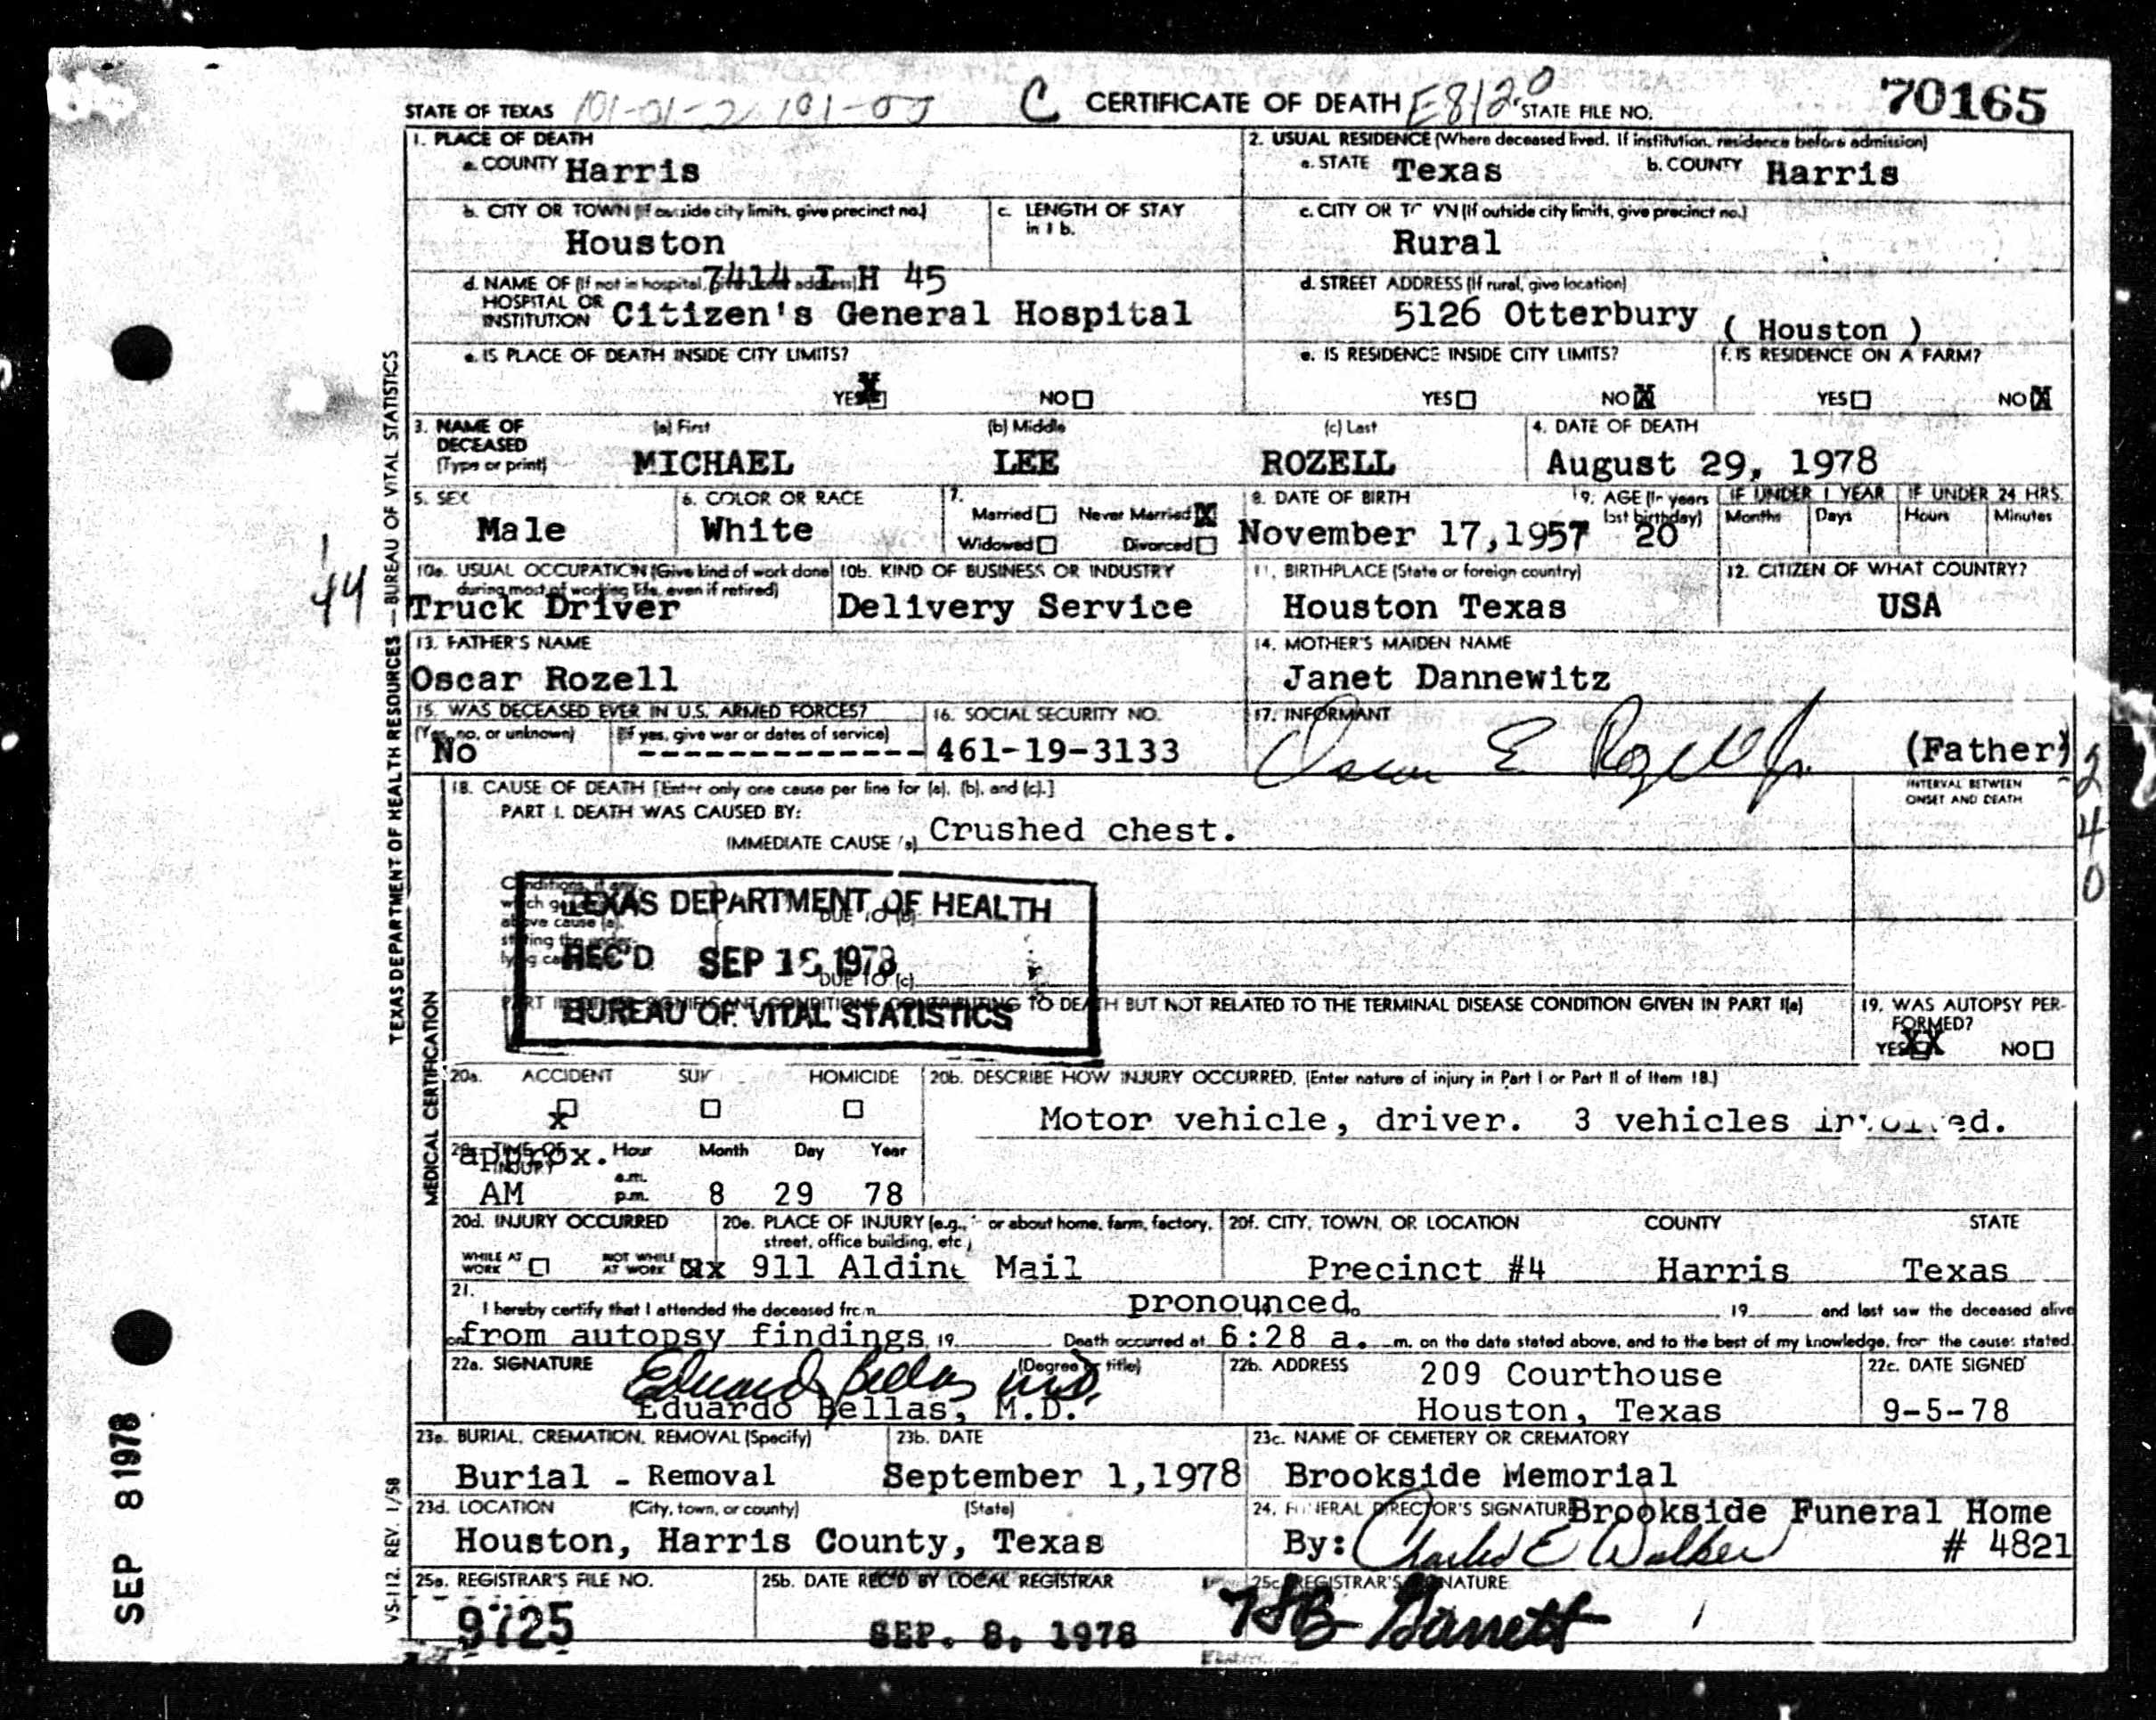 STATE OF TEXAS 101-01-2 101-05 C CERTIFICATE OF DEATH E812 0 STATE FILE NO. 70165
1. PLACE OF DEATH
a. COUNTY Harris
2. USUAL RESIDENCE (Where deceased lived. If institution, residence before admission)
a. STATE Texas b. COUNTY Harris
b. CITY OR TOWN (If outside city limits, give precinct no.)
Houston
c. LENGTH OF STAY in 1 b.
c. CITY OR TOWN (If outside city limits, give precinct no.)
Rural
d. NAME OF (If not in hospital, address) 7414 I H 45
HOSPITAL OR INSTITUTION Citizen's General Hospital
d. STREET ADDRESS (If rural, give location)
5126 Otterbury ( Houston )
e. IS PLACE OF DEATH INSIDE CITY LIMITS?
YES X NO
e. IS RESIDENCE INSIDE CITY LIMITS?
YES NO X
f. IS RESIDENCE ON A FARM?
YES NO X
3. NAME OF DECEASED (Type or print)
(a) First (b) Middle (c) Last
MICHAEL LEE ROZELL
4. DATE OF DEATH
August 29, 1978
5. SEX
Male
6. COLOR OR RACE
White
7.
Married Never Married X
Widowed Divorced
8. DATE OF BIRTH
November 17,1957
9. AGE (In years last birthday)
20
IF UNDER 1 YEAR IF UNDER 24 HRS.
Months Days Hours Minutes
10a. USUAL OCCUPATION (Give kind of work done during most of working life, even if retired)
Truck Driver
10b. KIND OF BUSINESS OR INDUSTRY
Delivery Service
11. BIRTHPLACE (State or foreign country)
Houston Texas
12. CITIZEN OF WHAT COUNTRY?
USA
44
13. FATHER'S NAME
Oscar Rozell
14. MOTHER'S MAIDEN NAME
Janet Dannewitz
15. WAS DECEASED EVER IN U.S. ARMED FORCES?
(Yes, no, or unknown) (If yes, give war or dates of service)
No --------------
16. SOCIAL SECURITY NO.
461-19-3133
17. INFORMANT
Oscar E Rozell Jr. (Father)
18. CAUSE OF DEATH [Enter only one cause per line for (a), (b), and (c).]
PART I. DEATH WAS CAUSED BY:
IMMEDIATE CAUSE (a) Crushed chest.
INTERVAL BETWEEN ONSET AND DEATH
2
4
0
Conditions, if any,
which
above cause (a),
stating the under-
DUE TO (b)
DUE TO (c)
TEXAS DEPARTMENT OF HEALTH
REC'D SEP 1978
BUREAU OF VITAL STATISTICS
PART II. OTHER SIGNIFICANT CONDITIONS CONTRIBUTING TO DEATH BUT NOT RELATED TO THE TERMINAL DISEASE CONDITION GIVEN IN PART I(a)
19. WAS AUTOPSY PERFORMED?
YES XX NO
20a. ACCIDENT HOMICIDE
X
20b. DESCRIBE HOW INJURY OCCURRED. (Enter nature of injury in Part I or Part II of Item 18.)
Motor vehicle, driver. 3 vehicles involved.
TIME OF INJURY Hour Month Day Year
approx. a.m.
AM p.m. 8 29 78
20d. INJURY OCCURRED
WHILE AT WORK NOT WHILE AT WORK x
20e. PLACE OF INJURY (e.g., or about home, farm, factory, street, office building, etc.)
911 Aldine Mail
20f. CITY, TOWN, OR LOCATION COUNTY STATE
Precinct #4 Harris Texas
21.
I hereby certify that I attended the deceased from pronounced. 19 and last saw the deceased alive
on from autopsy findings 19 Death occurred at 6:28 a. m. on the date stated above, and to the best of my knowledge, from the causes stated.
22a. SIGNATURE (Degree or title)
Eduardo Bellas M.D.
Eduardo Bellas, M.D.
22b. ADDRESS
209 Courthouse
Houston, Texas
22c. DATE SIGNED
9-5-78
23a. BURIAL, CREMATION, REMOVAL (Specify)
Burial - Removal
23b. DATE
September 1,1978
23c. NAME OF CEMETERY OR CREMATORY
Brookside Memorial
23d. LOCATION (City, town, or county) (State)
Houston, Harris County, Texas
24. FUNERAL DIRECTOR'S SIGNATURE Brookside Funeral Home
By: Charles E Walker # 4821
25a. REGISTRAR'S FILE NO.
9725
25b. DATE REC'D BY LOCAL REGISTRAR
SEP. 8, 1978
25c. REGISTRAR'S SIGNATURE
Barrett
TEXAS DEPARTMENT OF HEALTH RESOURCES — BUREAU OF VITAL STATISTICS
MEDICAL CERTIFICATION
VS-112, REV. 1/58
SEP 8 1978